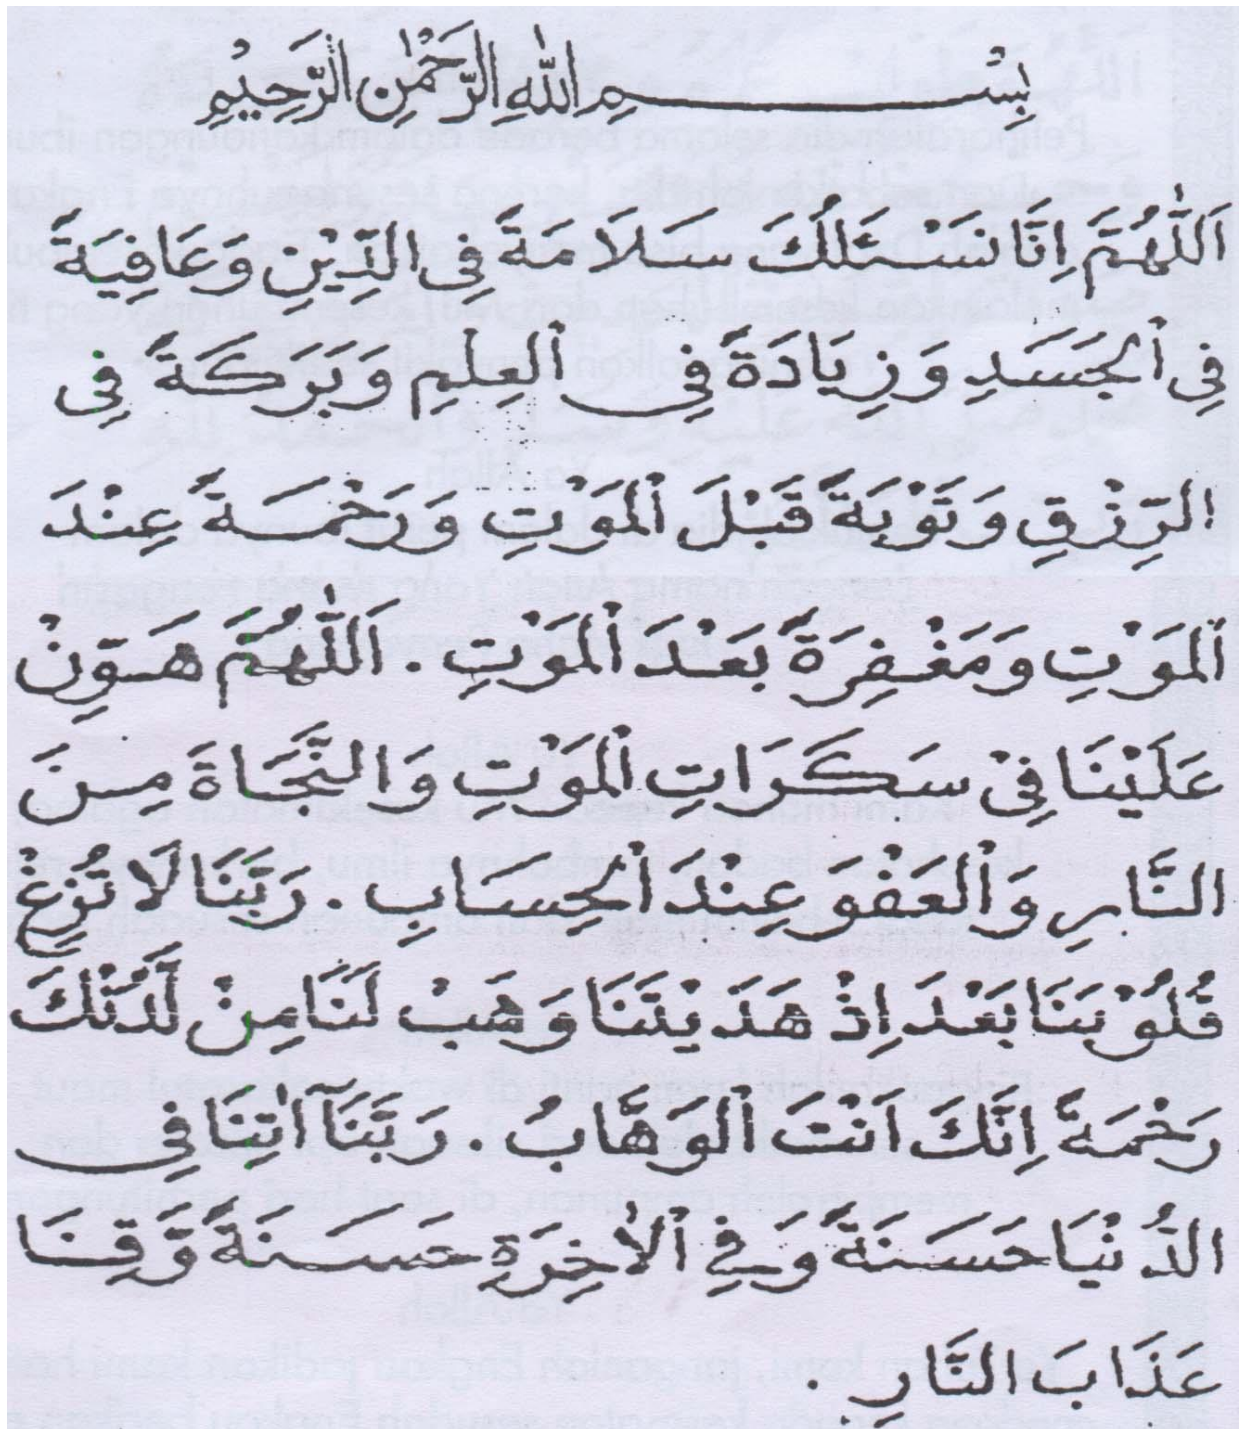 بِسْــــــــمِ اللّٰهِ الرَّحْمٰنِ الرَّحِيْمِ
اَللّٰهُمَّ اِنَّا نَسْئَلُكَ سَلَامَةً فِى الدِّيْنِ وَعَافِيَةً
فِى اْلجَسَدِ وَزِيَادَةً فِى اْلعِلْمِ وَبَرَكَةً فِى
الرِّزْقِ وَتَوْبَةً قَبْلَ اْلمَوْتِ وَرَحْمَةً عِنْدَ
اْلمَوْتِ وَمَغْفِرَةً بَعْدَ اْلمَوْتِ. اَللّٰهُمَّ هَوِّنْ
عَلَيْنَا فِىْ سَكَرَاتِ اْلمَوْتِ وَالنَّجَاةَ مِنَ
النَّارِ وَاْلعَفْوَ عِنْدَ اْلحِسَابِ. رَبَّنَا لَا تُزِغْ
قُلُوْبَنَا بَعْدَ اِذْ هَدَيْتَنَا وَهَبْ لَنَا مِنْ لَّدُنْكَ
رَحْمَةً اِنَّكَ اَنْتَ اْلوَهَّابُ. رَبَّنَآ اٰتِنَا فِى
الدُّنْيَا حَسَنَةً وَفِى اْلاٰخِرَةِ حَسَنَةً وَّقِنَا
عَذَابَ النَّارِ.